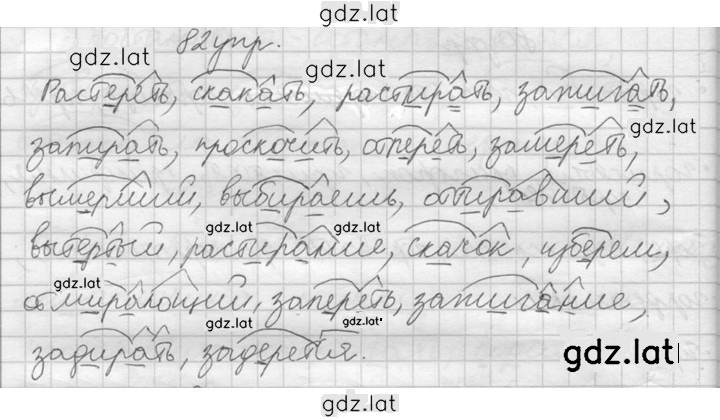 gdz.lat
82 упр. gdz.lat
gdz.lat
Растереть, скакать, растирать, зажигать,
gdz.lat
запирать, проскочить, отпереть, замереть,
вымерший, выбираешь, отпиравший,
gdz.lat
вытертый, растирание, скачок, изберем,
gdz.lat
обмирающий, запереть, зажигание,
gdz.lat gdz.lat
задирать, задерется.
gdz.lat
gdz.lat